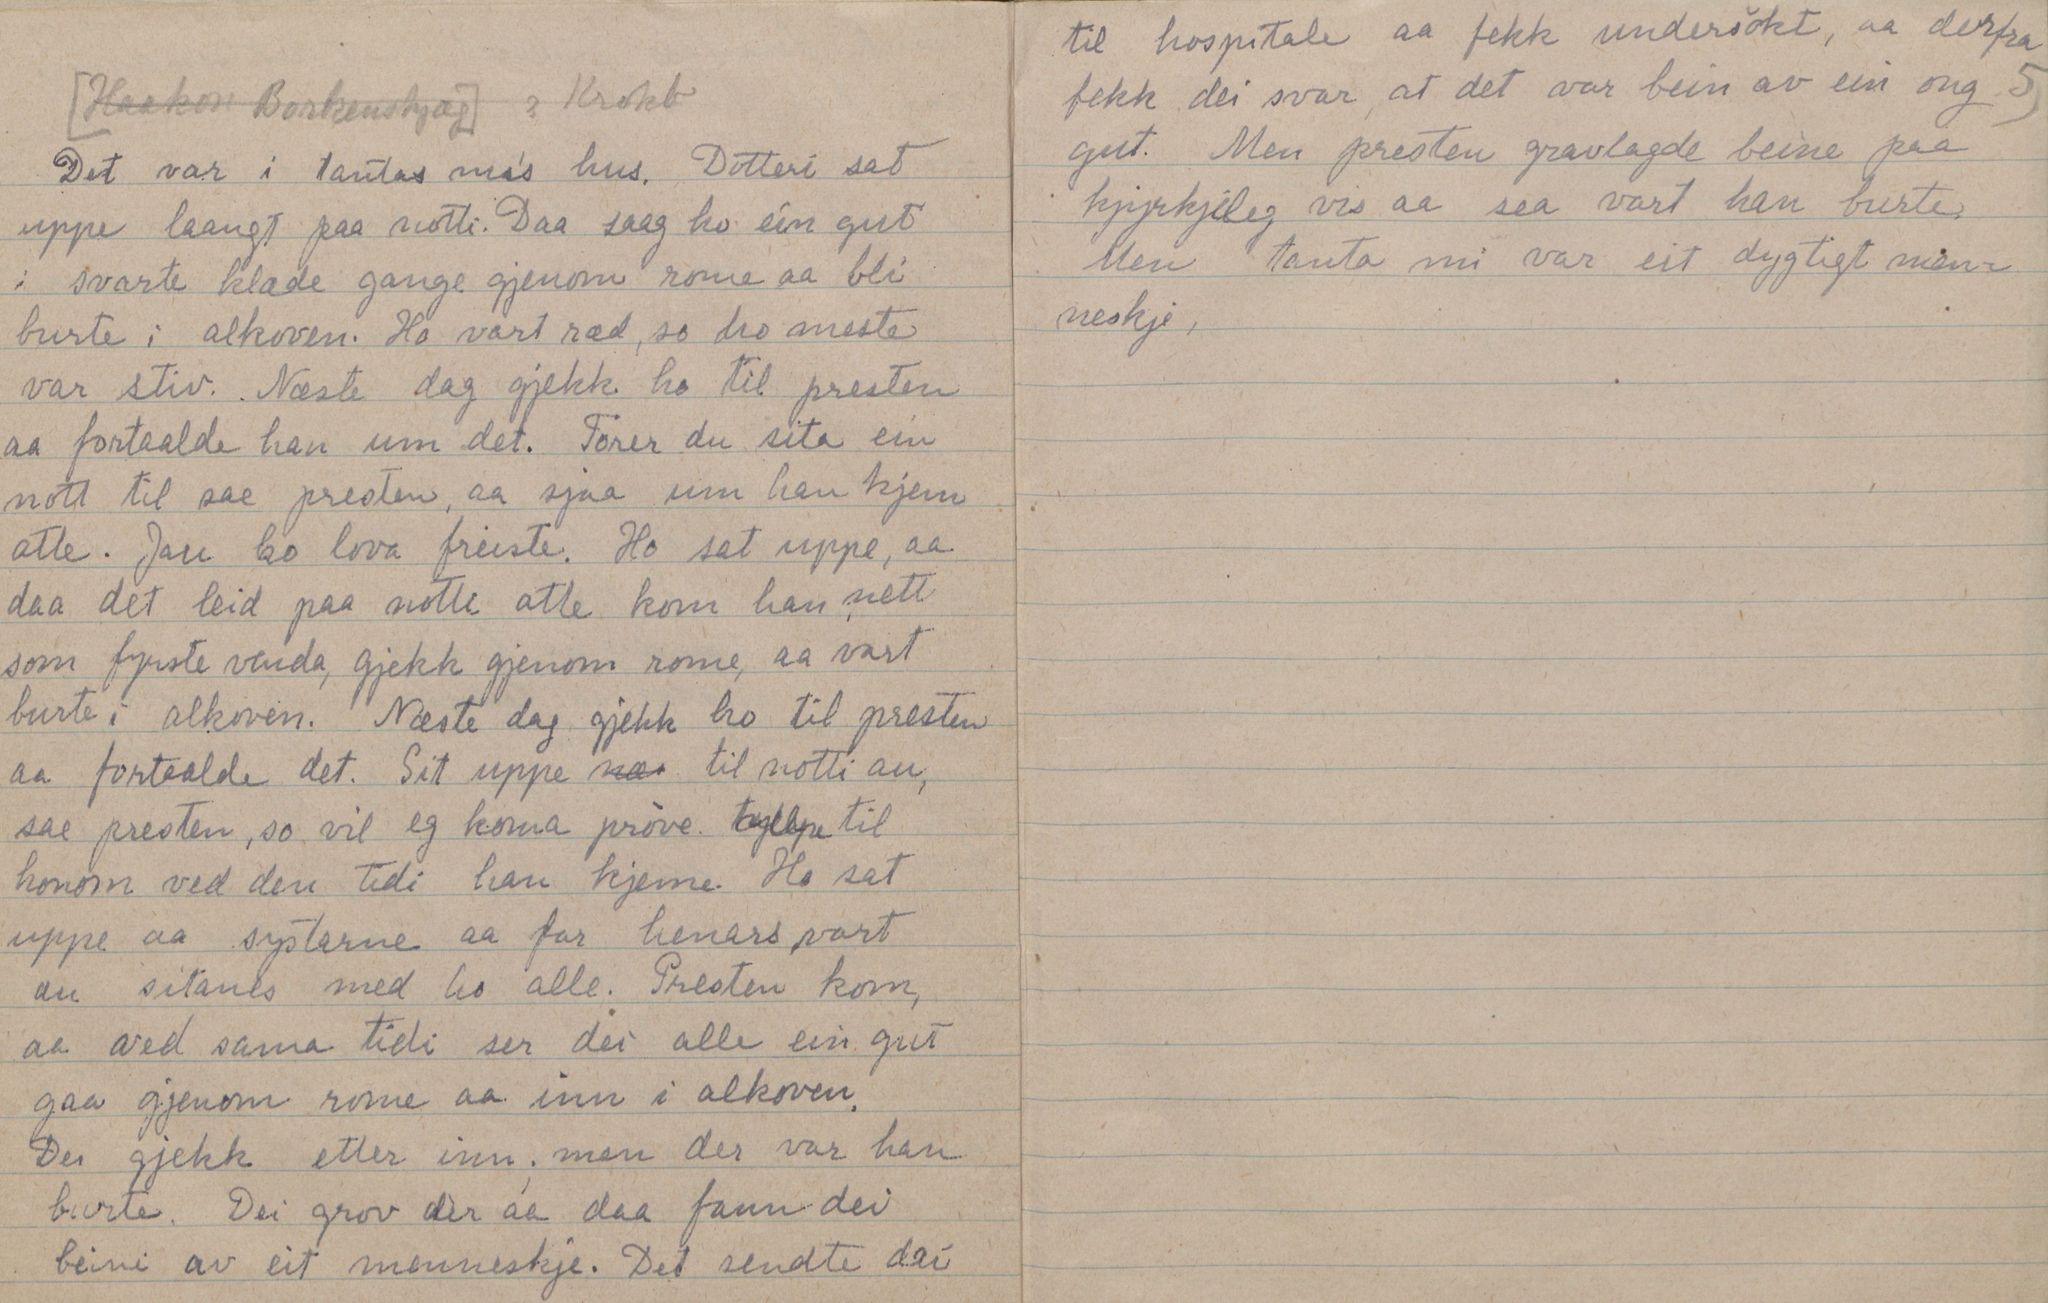 [Haakon Borkenshjag] ? Krokb
Det var i tantas mi's hus. Dotteri sat
uppe laangt paa notti. Daa saag ho ein gut
i svarte klæde gange gjenom rome aa bli
burte i alkoven. Ho vart ræd, so ho meste
var stiv. Næste dag gjekk ho til presten
aa fortaalde han um det. Törer du sita ein
nott til sae presten, aa sjaa um han kjem
atte. Jau ho lova freiste. Ho sat uppe, aa
daa det leid paa notti atte kom han, nett
som fyrste venda, gjekk gjenom rome, aa vart
burte i alkoven. Næste dag gjekk ho til presten
aa fortaalde det. Sit uppe til notti au,
sae presten, so vil eg koma pröve til
honom ved den tidi han kjeme. Ho sat
uppe aa systarne aa far henars vart
au sitanes med ho alle. Presten kom,
aa ved sama tidi ser dei alle ein gut
gaa gjenom rome aa inn i alkoven.
Dei gjekk etter inn, men der var han
burte. Dei grov der aa daa fann dei
beini av eit menneskje. Det sendte dei
til hospitale aa fekk undersökt, aa derfra
fekk dei svar, at det var bein av ein ong 5)
gut. Men presten gravlagde beine paa
kjyrkjeleg vis aa sea vart han burte.
Men tanta mi var eit dygtigt men-
neskje,